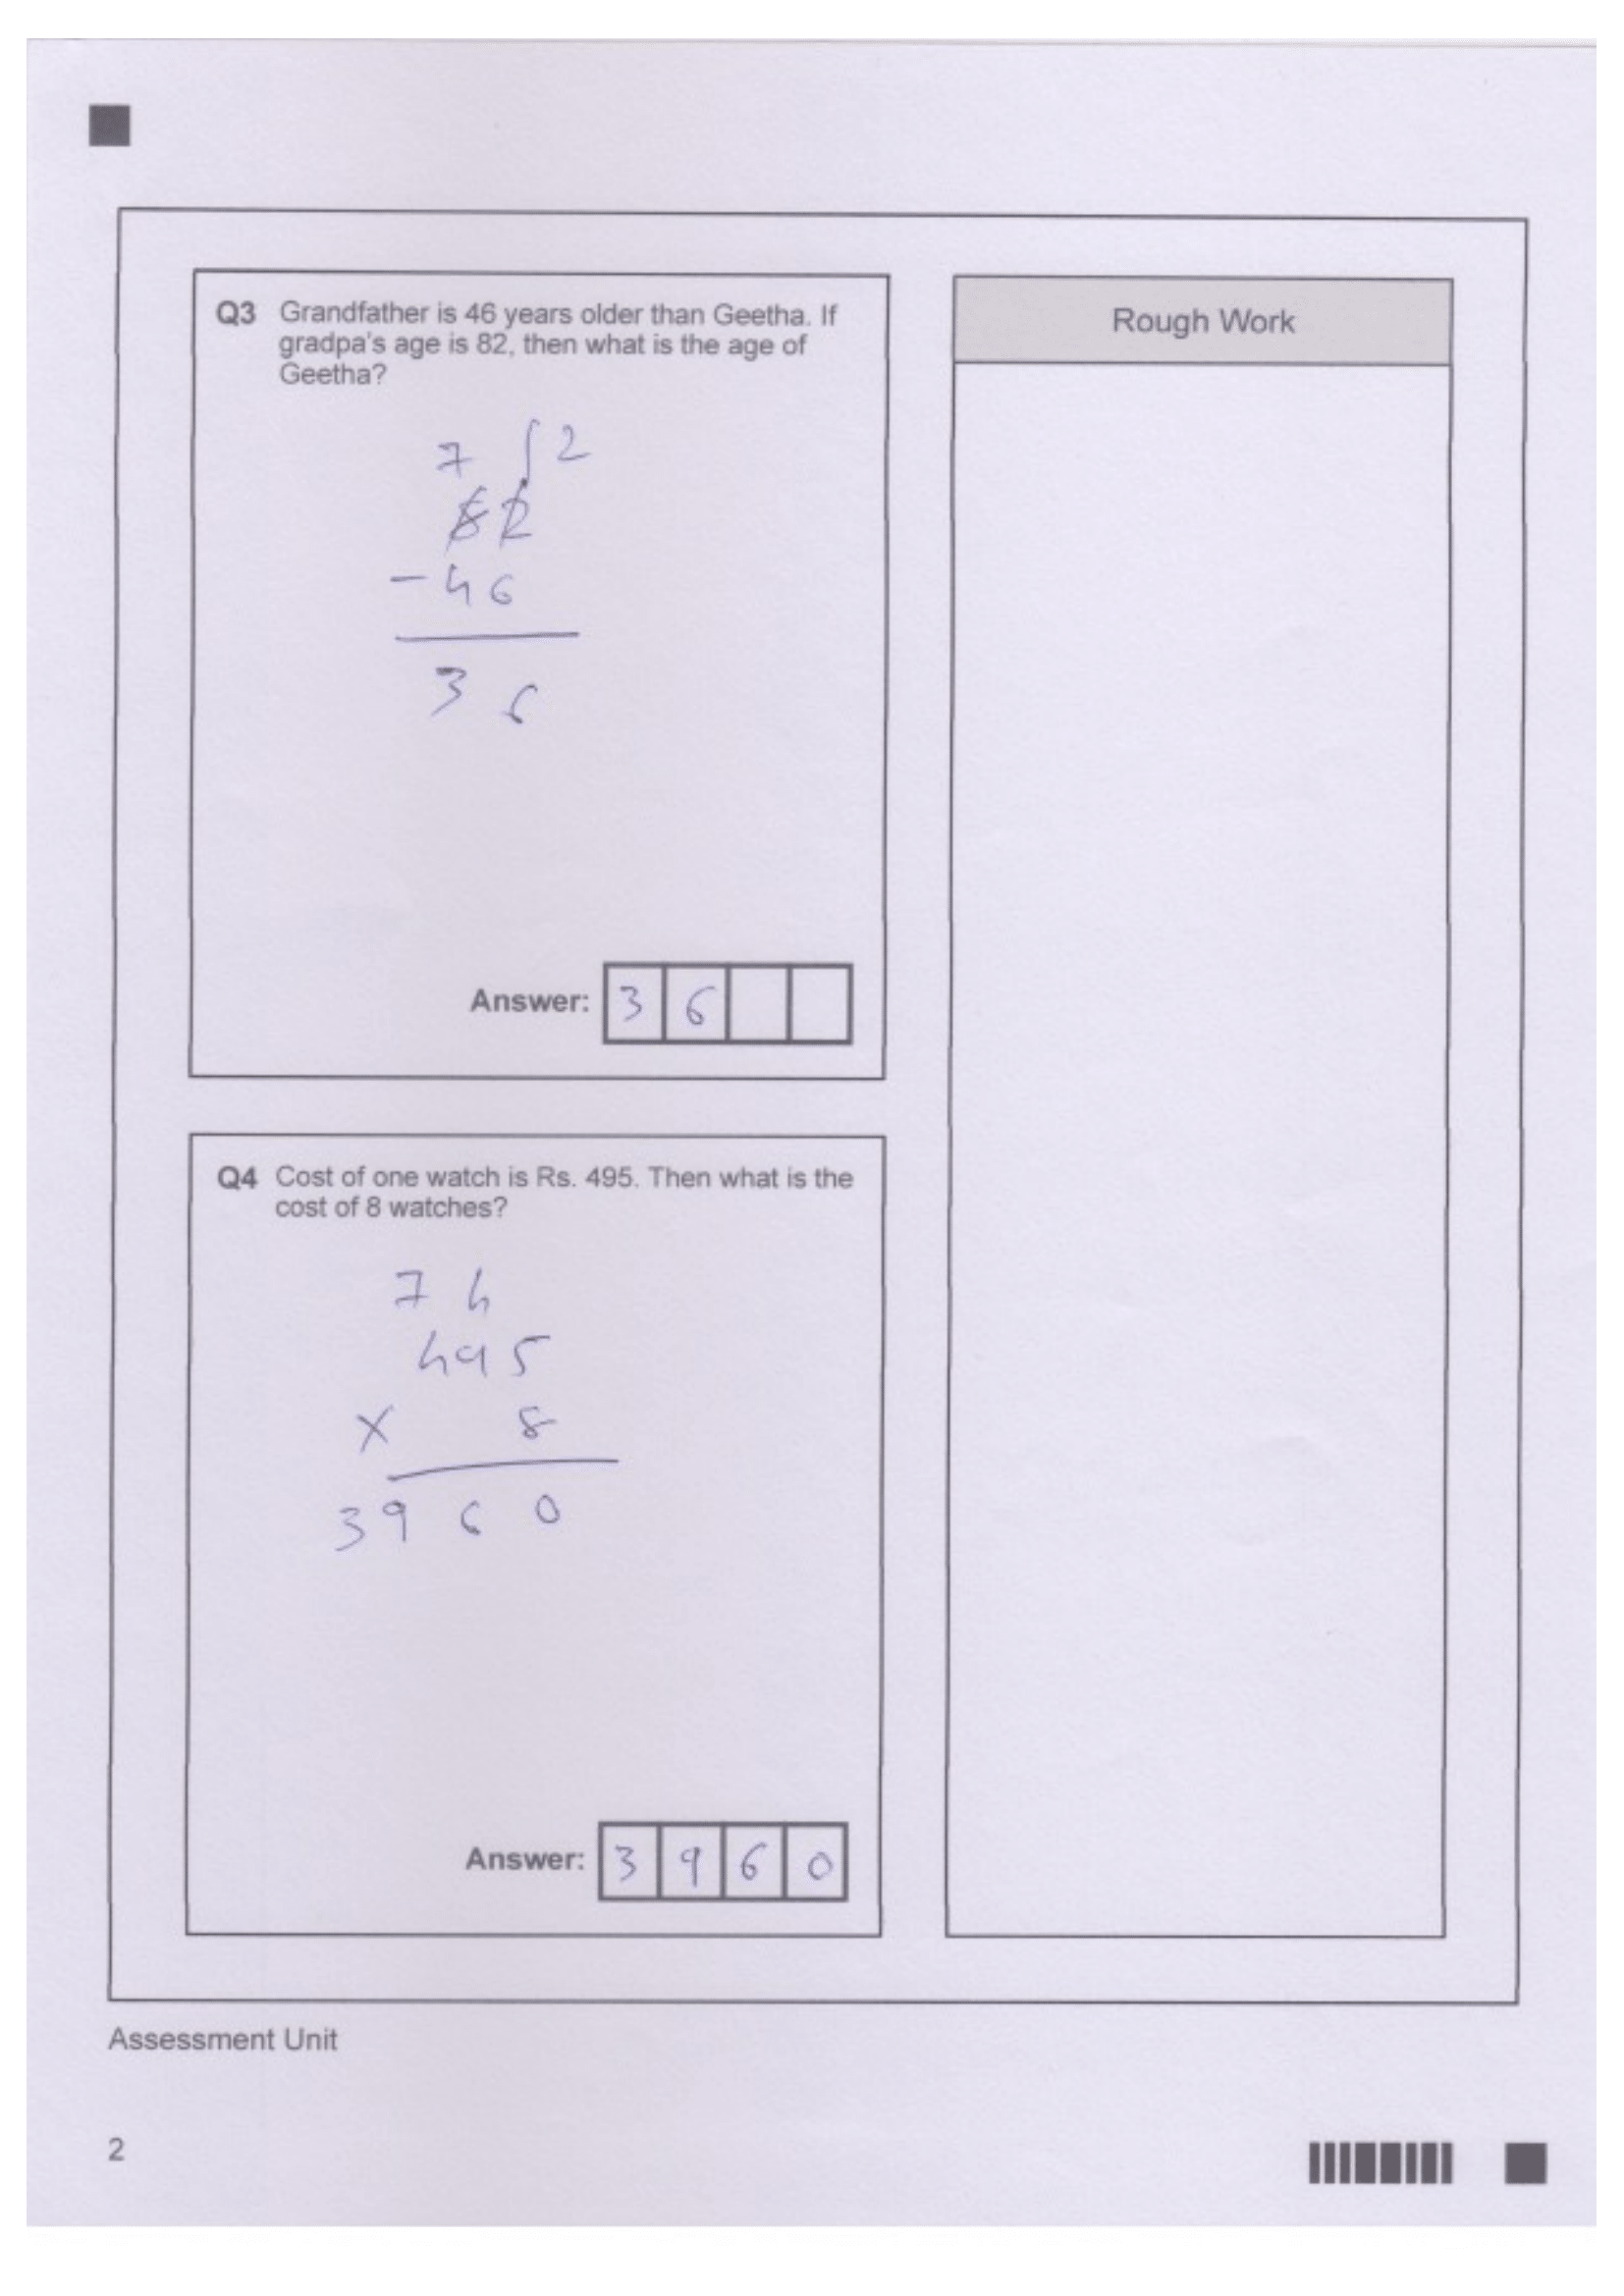 Q3 Grandfather is 46 years older than Geetha. If
gradpa's age is 82, then what is the age of
Geetha?
7 12
82
- 46
3 6
Answer: 3 6
Rough Work
Q4 Cost of one watch is Rs. 495. Then what is the
cost of 8 watches?
7 4
495
X 8
3960
Answer: 3 9 6 0
Assessment Unit
2